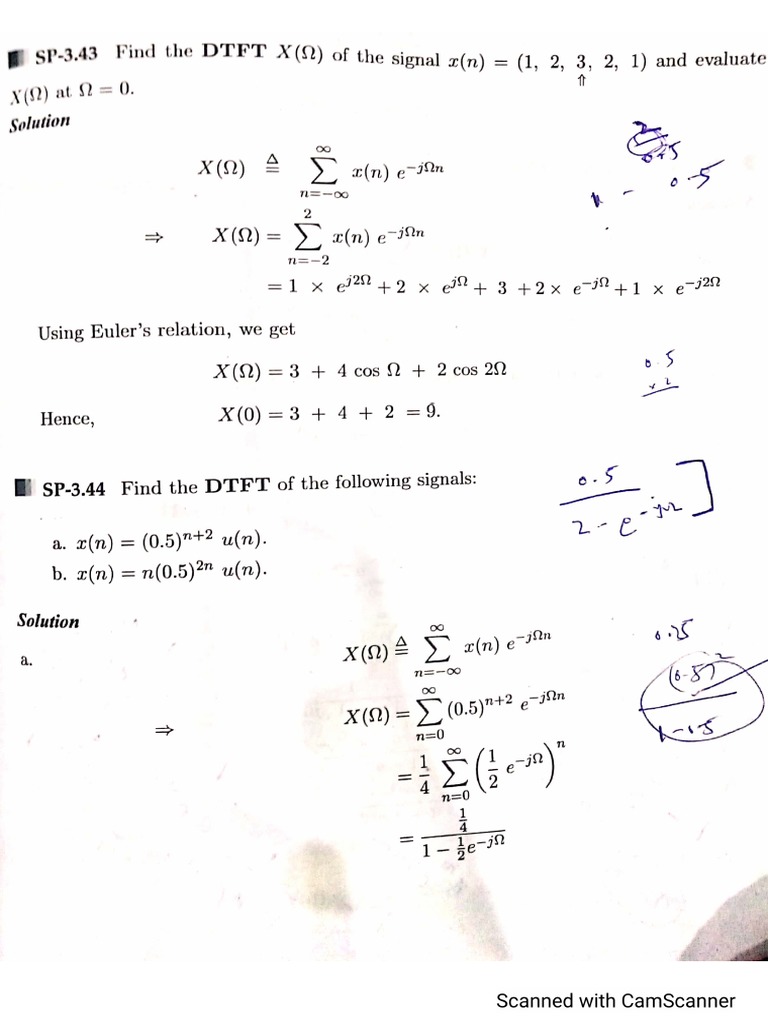 SP-3.43 Find the DTFT X(Ω) of the signal x(n) = (1, 2, 3, 2, 1) and evaluate
⇑
X(Ω) at Ω = 0.
Solution
X(Ω) ≜ ∑_{n=−∞}^{∞} x(n) e^{−jΩn}
⇒ X(Ω) = ∑_{n=−2}^{2} x(n) e^{−jΩn}
= 1 × e^{j2Ω} + 2 × e^{jΩ} + 3 + 2 × e^{−jΩ} + 1 × e^{−j2Ω}
Using Euler's relation, we get
X(Ω) = 3 + 4 cos Ω + 2 cos 2Ω
0.5
× 2
Hence, X(0) = 3 + 4 + 2 = 9.
SP-3.44 Find the DTFT of the following signals:
0.5
2 - e^{-jΩ} ]
a. x(n) = (0.5)^{n+2} u(n).
b. x(n) = n(0.5)^{2n} u(n).
Solution
a. X(Ω) ≜ ∑_{n=−∞}^{∞} x(n) e^{−jΩn}
0.25
(0.5)^2
⇒ X(Ω) = ∑_{n=0}^{∞} (0.5)^{n+2} e^{−jΩn}
= 1/4 ∑_{n=0}^{∞} (1/2 e^{−jΩ})^n
= (1/4)/(1 − 1/2 e^{−jΩ})
Scanned with CamScanner